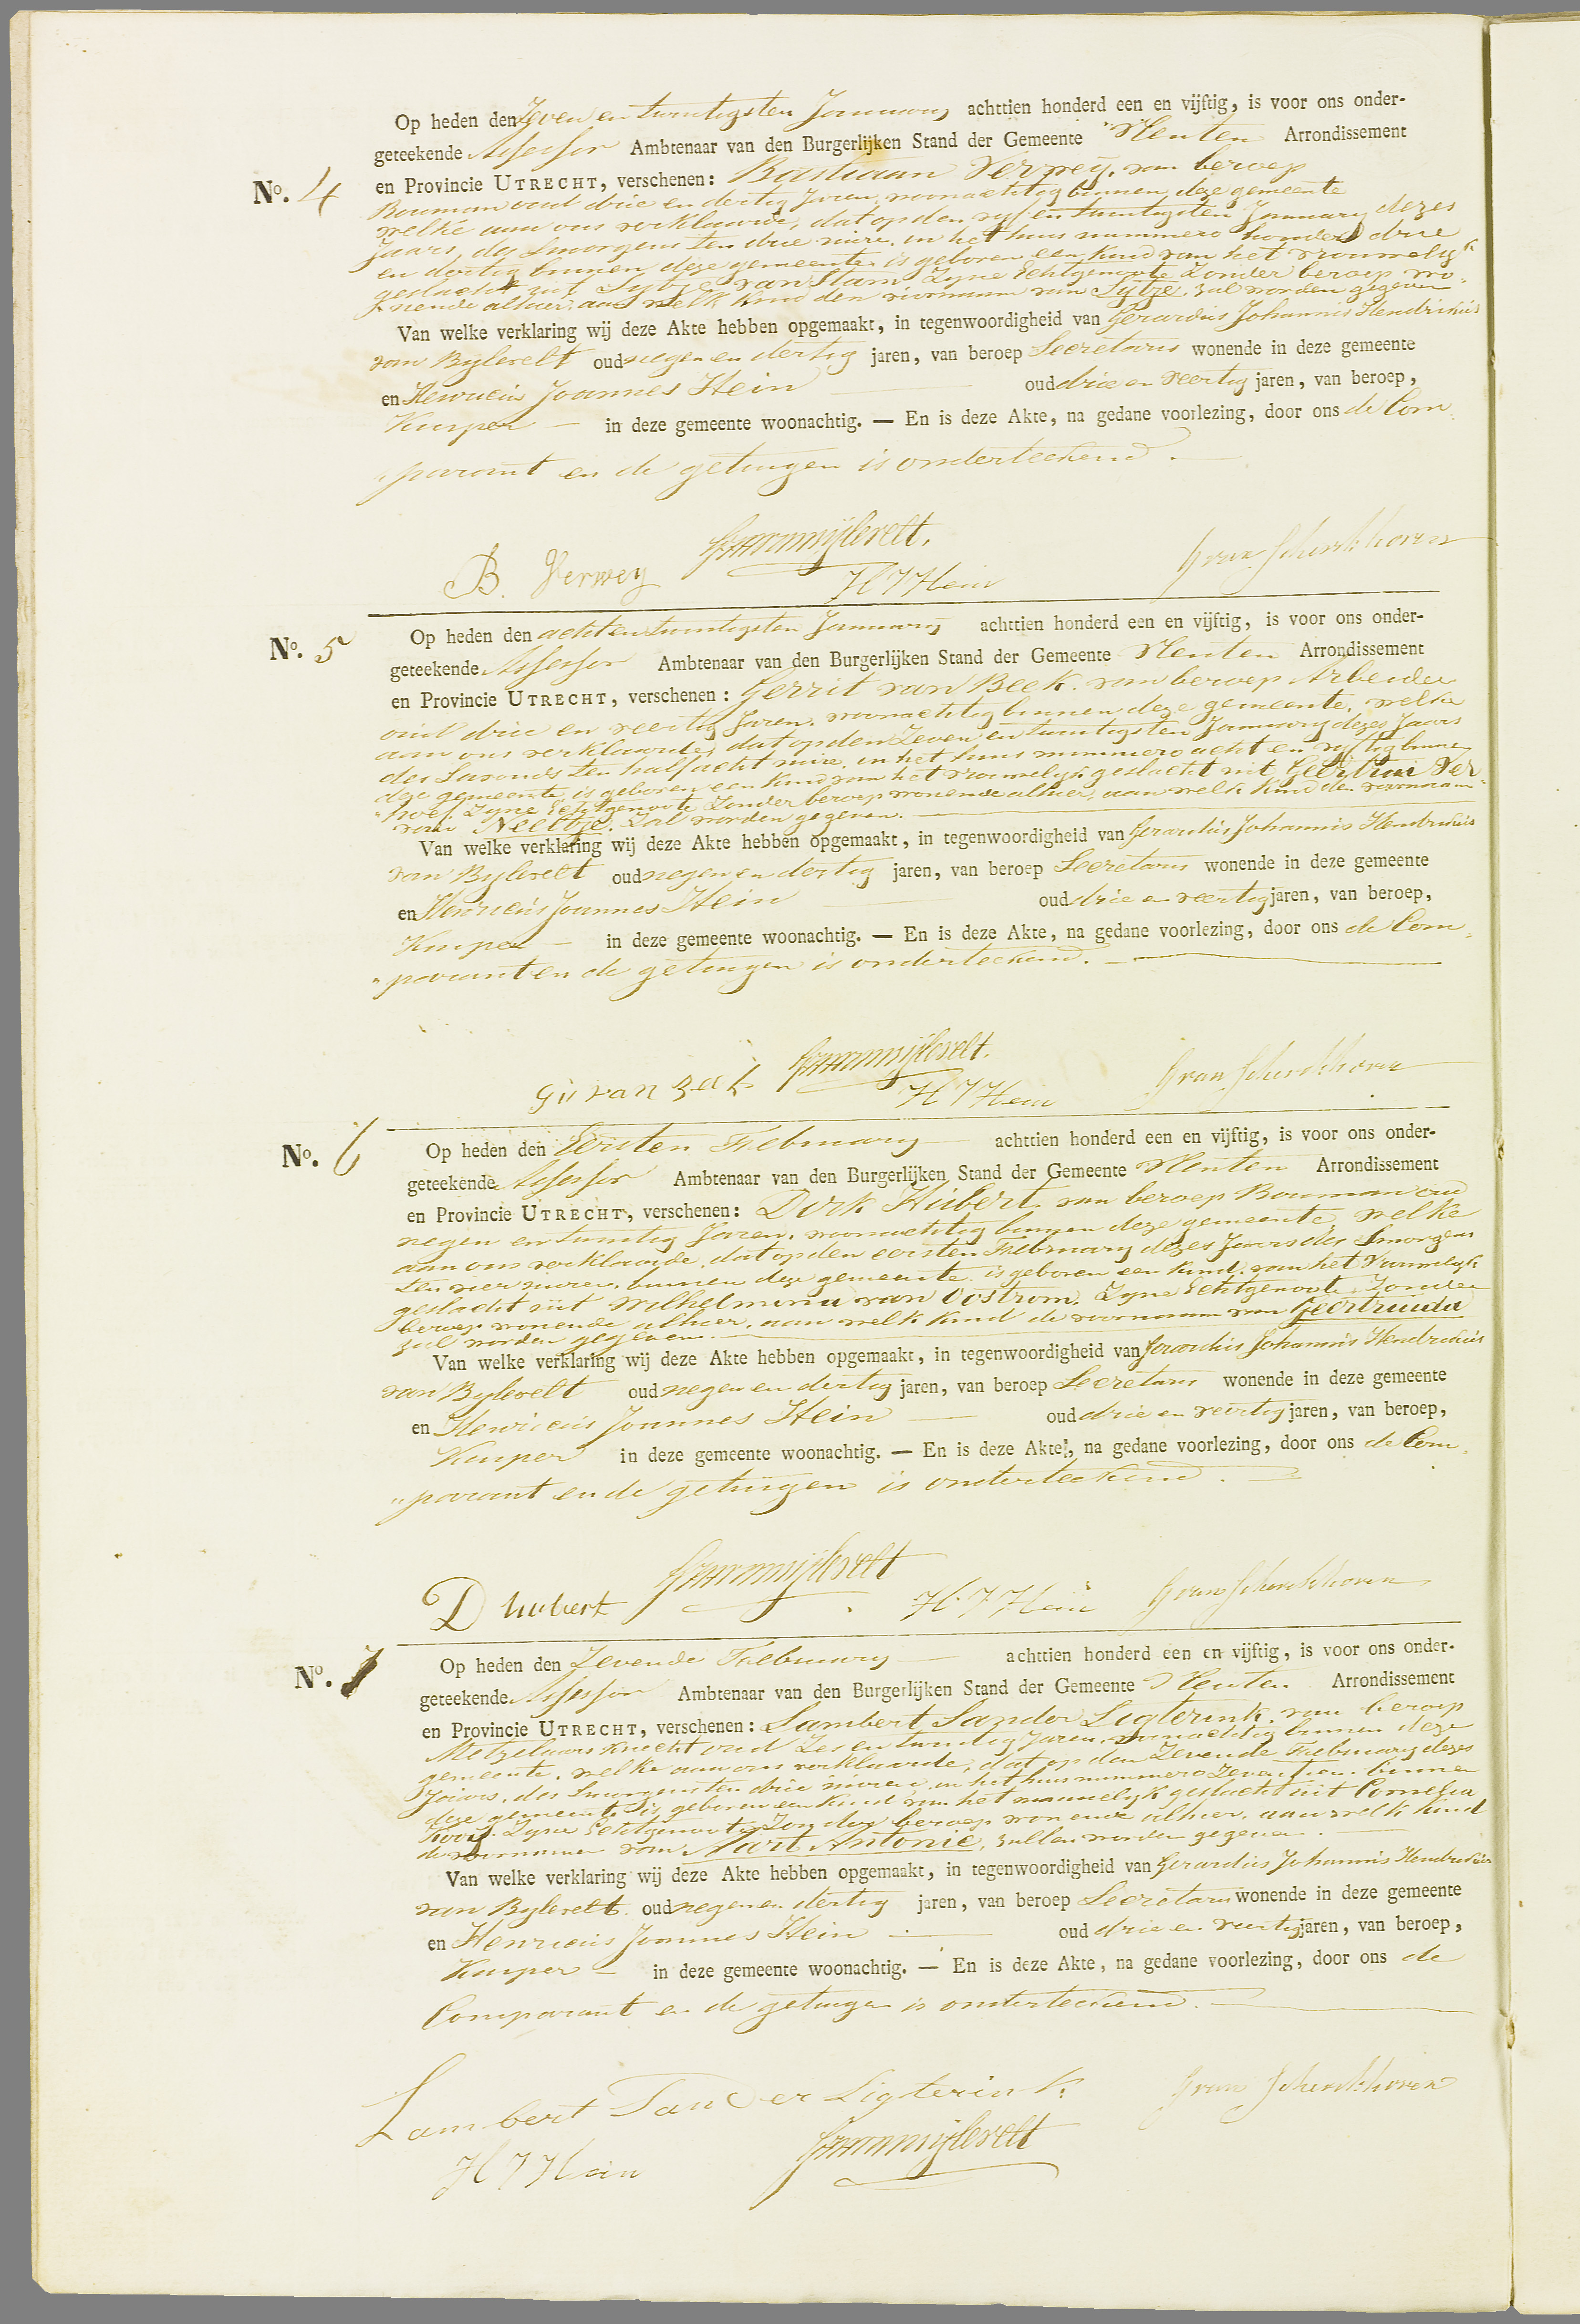 Op heden den Zeven en twintigsten January achttien honderd een en vijftig, is voor ons onder-
geteekende Assessor Ambtenaar van den Burgerlijken Stand der Gemeente Houten Arrondissement
No. 4 en Provincie UTRECHT, verschenen: Bastiaan Verweij, van beroep
Bouman oud drie en dertig Jaren, woonachtig binnen deze gemeente
welke aan ons verklaarde, dat op den vyf en twintigsten January dezes
Jaars, des Smorgens ten drie uure, in het huis nummero honderd drie
en dertig binnen deze gemeente is geboren een kind van het vrouwelyk
geslacht uit Sytje van Stam Zyne Echtgenoote Zonder beroep wo-
nende alhier, aan welk kind den voornaam van Sytje, zal worden gegeven
Van welke verklaring wij deze Akte hebben opgemaakt, in tegenwoordigheid van Gerardus Johannis Hendrikus
van Bylevelt oud negen en dertig jaren, van beroep Secretaris wonende in deze gemeente
en Henricus Joannes Hein oud drie en veertig jaren, van beroep,
Kuiper in deze gemeente woonachtig. — En is deze Akte, na gedane voorlezing, door ons de Com
parant en de getuigen is onderteekend.
B. Verweij
H J Hein
No. 5 Op heden den acht en twintigsten January achttien honderd een en vijftig, is voor ons onder-
geteekende Assessor Ambtenaar van den Burgerlijken Stand der Gemeente Houten Arrondissement
en Provincie UTRECHT, verschenen: Gerrit van Beek. van beroep Arbeider
oud drie en veertig Jaren, woonachtig binnen deze gemeente, welke
aan ons verklaarde, dat op den Zeven en twintigsten January dezes Jaars
des Savonds ten half acht uure, in het huis nummero acht en vyftig binnen
deze gemeente is geboren een kind van het vrouwelyk geslacht uit Geertrui Ver-
hoef. Zyne Echtgenoote Zonder beroep wonende alhier, aan welk kind den voornaam
van Neeltje. Zal worden gegeven.
Van welke verklaring wij deze Akte hebben opgemaakt, in tegenwoordigheid van Gerardus Johannis Hendrikus
van Bylevelt oud negen en dertig jaren, van beroep Secretaris wonende in deze gemeente
en Henricus Joannes Hein oud drie en veertig jaren, van beroep,
Kuiper in deze gemeente woonachtig. — En is deze Akte, na gedane voorlezing, door ons de Com
parant en de getuigen is onderteekend.
van Beek
H J Hein
No. 6 Op heden den Eersten February achttien honderd een en vijftig, is voor ons onder-
geteekende Assessor Ambtenaar van den Burgerlijken Stand der Gemeente Houten Arrondissement
en Provincie UTRECHT, verschenen: Dirk Hubert, van beroep Bouman oud
negen en twintig Jaren, woonachtig binnen deze gemeente, welke
aan ons verklaarde, dat op den eersten February dezes Jaars des Smorgens
ten vier uuren, binnen deze gemeente is geboren een kind, van het Vrouwelyk
geslacht uit Wilhelmina van Oostrom. Zyne Echtgenoote Zonder
beroep wonende alhier, aan welk kind de voornaam van Geertruida
zal worden gegeven.
Van welke verklaring wij deze Akte hebben opgemaakt, in tegenwoordigheid van Gerardus Johannis Hendrikus
van Bylevelt oud negen en dertig jaren, van beroep Secretaris wonende in deze gemeente
en Henricus Joannes Hein oud drie en veertig jaren, van beroep,
Kuiper in deze gemeente woonachtig. — En is deze Akte, na gedane voorlezing, door ons de Com
parant en de getuigen is onderteekend.
D Hubert
H. J Hein
No. 7 Op heden den Zevende February achttien honderd een en vijftig, is voor ons onder-
geteekende Assessor Ambtenaar van den Burgerlijken Stand der Gemeente Houten Arrondissement
en Provincie UTRECHT, verschenen: Lambert Sander Ligterink. van beroep
Metzelaars knecht oud Zes en twintig Jaren, woonachtig binnen deze
gemeente, welke aan ons verklaarde, dat op den Zevende February dezes
Jaars, des Smorgens ten drie uuren, in het huis nummero Zeventien binnen
deze gemeente is geboren een kind van het mannelyk geslacht uit Cornelia
Zyne Echtgenoote Zonder beroep wonende alhier, aan welk kind
de voornamen van Aart Antonie, zullen worden gegeven.
Van welke verklaring wij deze Akte hebben opgemaakt, in tegenwoordigheid van Gerardus Johannis Hendrikus
van Bylevelt oud negen en dertig jaren, van beroep Secretaris wonende in deze gemeente
en Henricus Joannes Hein oud drie en veertig jaren, van beroep,
Kuiper in deze gemeente woonachtig. — En is deze Akte, na gedane voorlezing, door ons de
Comparant en de getuigen is onderteekend.
Lambert Sander Ligterink
H J Hein